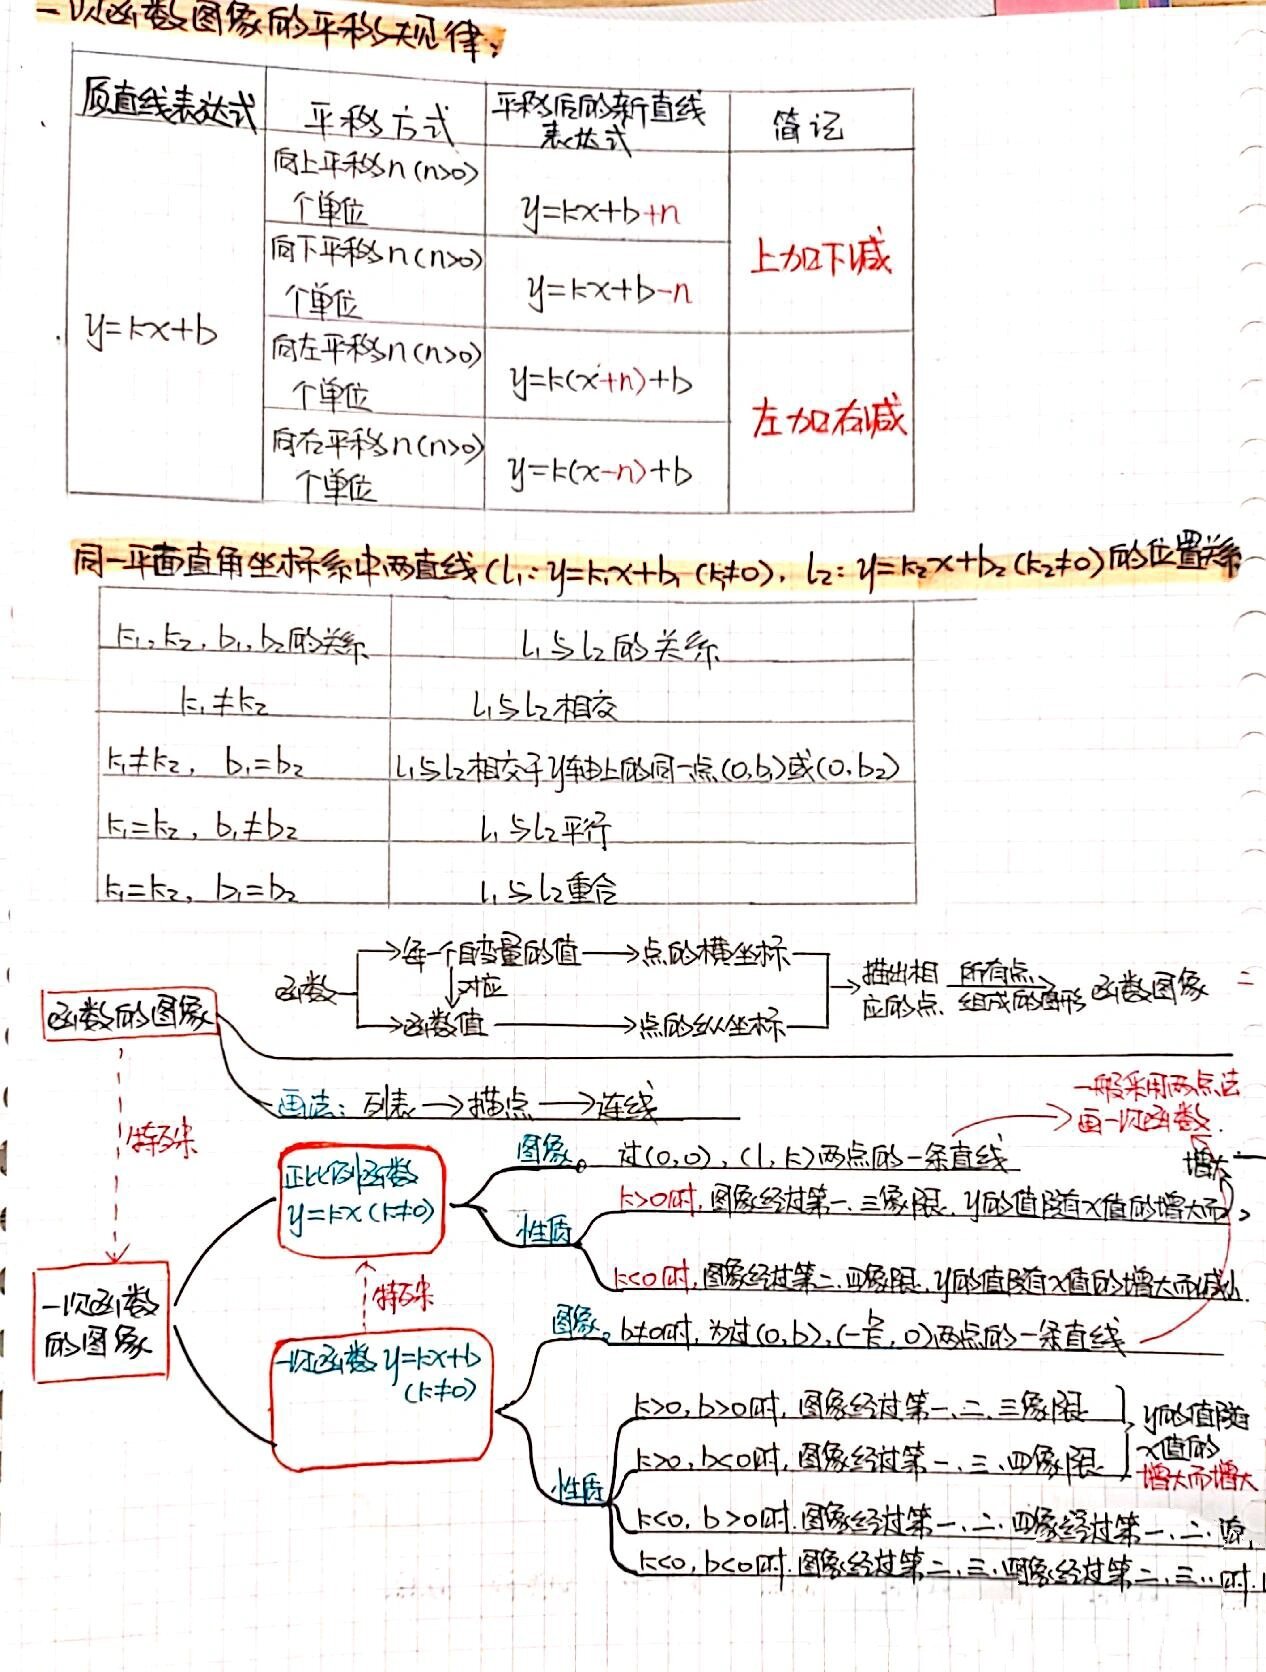 一次函数图像的平移规律:
原直线表达式 平移方式 平移后的新直线表达式 简记
y=kx+b
向上平移n(n>0)个单位 y=kx+b+n
向下平移n(n>0)个单位 y=kx+b-n
上加下减
向左平移n(n>0)个单位 y=k(x+n)+b
向右平移n(n>0)个单位 y=k(x-n)+b
左加右减
同一平面直角坐标系中两直线(l₁: y=k₁x+b₁(k₁≠0), l₂: y=k₂x+b₂(k₂≠0)的位置关系
k₁, k₂, b₁, b₂的关系 l₁与l₂的关系
k₁≠k₂ l₁与l₂相交
k₁≠k₂, b₁=b₂ l₁与l₂相交于y轴上的同一点(0,b₁)或(0,b₂)
k₁=k₂, b₁≠b₂ l₁与l₂平行
k₁=k₂, b₁=b₂ l₁与l₂重合
函数的图像
函数
每一个自变量的值→点的横坐标
对应
函数值→点的纵坐标
描出相应的点
所有点
组成的图形
函数图像
画法: 列表→描点→连线
特殊
一次函数的图像
正比例函数
y=kx(k≠0)
图像。过(0,0), (1,k)两点的一条直线
一般采用两点法
画一次函数.
性质
k>0时, 图象经过第一、三象限, y的值随x值的增大而
增大
k<0时, 图象经过第二、四象限, y的值随x值的增大而减小
特殊
一次函数y=kx+b
(k≠0)
图像。b≠0时, 为过(0,b), (-b/k, 0)两点的一条直线
性质
k>0, b>0时, 图象经过第一、二、三象限
k>0, b<0时, 图象经过第一、三、四象限
y的值随
x值的
增大而增大
k<0, b>0时, 图象经过第一、二、四象经过第一、二、
k<0, b<0时, 图象经过第二、三、四象经过第二、三